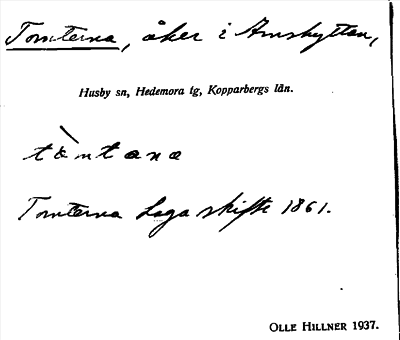 Tomterna, åker i Amshyttan,
Husby sn, Hedemora tg, Kopparbergs län.
tòmtana
Tomterna Laga skifte 1861.
OLLE HILLNER 1937.